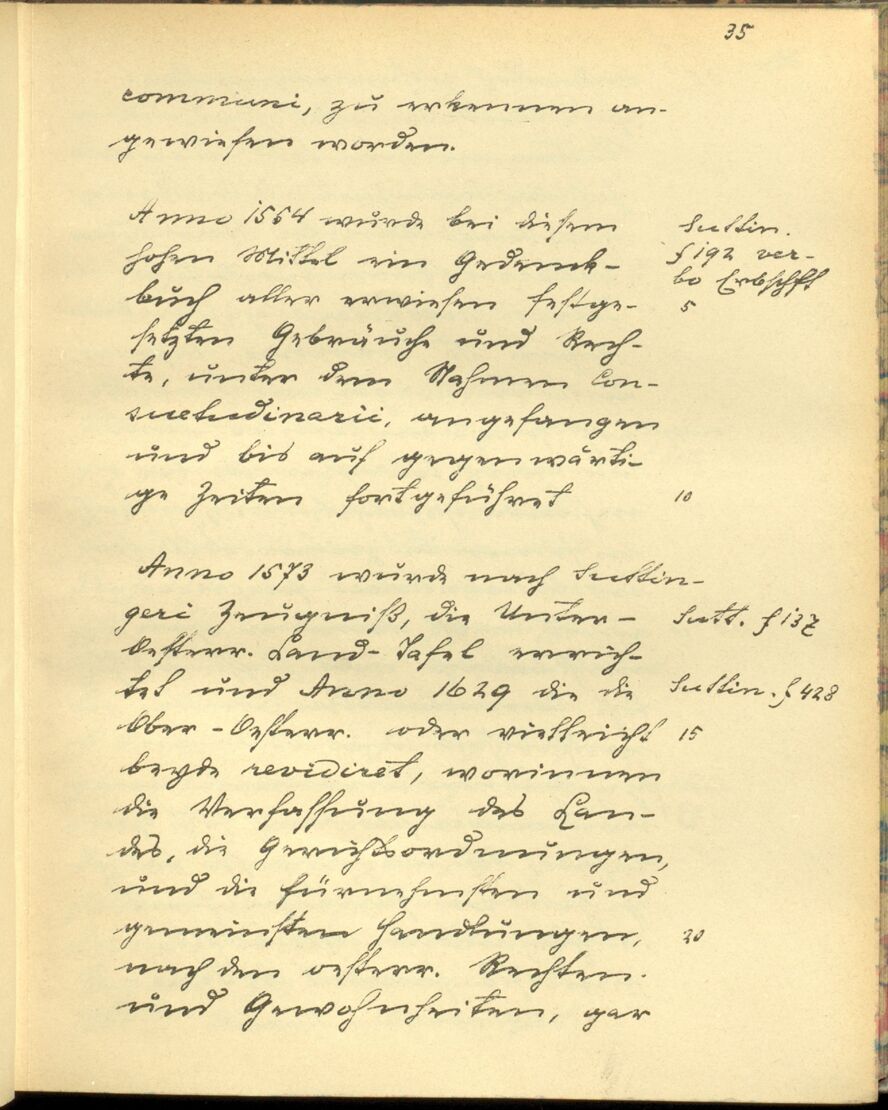 35
communi, zu erkennen an-
gewiesen worden.
Anno 1554 wurde bei diesem
hohen Mittel ein Gedenck-
buch aller erwiesen festge-
setzten Gebräuche und Rech-
te, unter dem Nahmen Con-
suetudinarii, angefangen
und bis auf gegenwärti-
ge Zeiten fortgeführet
Suttin.
f 192 ver-
bo Erbschfft
5
10
Anno 1573 wurde nach Suttin-
geri Zeugniß, die Unter-
Oesterr. Land-Tafel errich-
tet und Anno 1629 die die
Ober-Oesterr. oder vielleicht
beyde revidiret, worinnen
die Verfassung des Lan-
des, die Gerichtsordnungen,
und die fürnehmsten und
gemeinsten Handlungen,
nach den oesterr. Rechten
und Gewohnheiten, gar
Sutt. f 137
Suttin. f 428
15
20